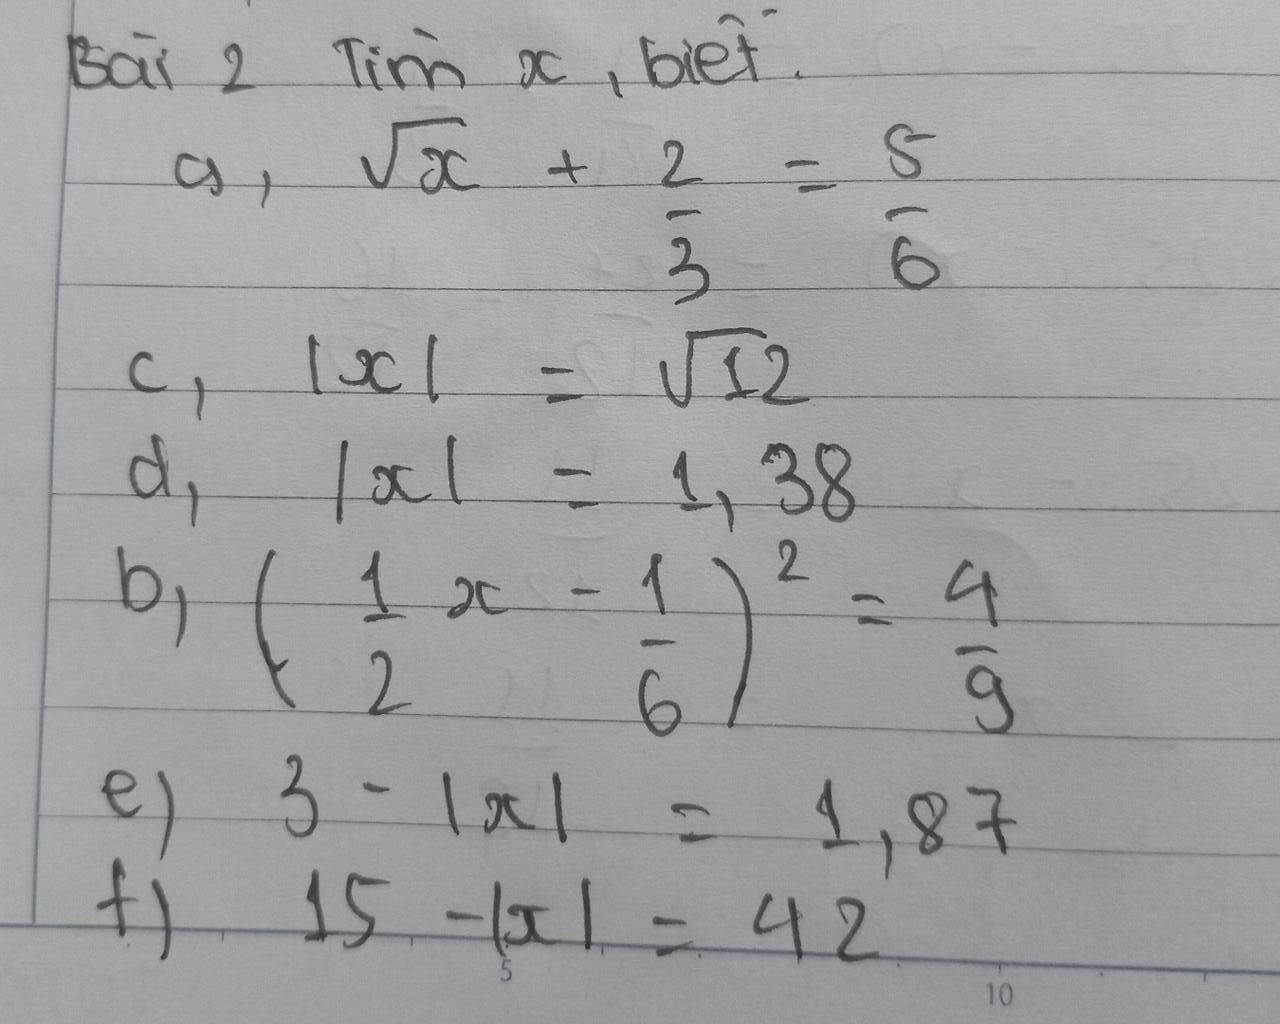 Bài 2 Tìm x, biết.
a, √x + 2/3 = 5/6
c, |x| = √12
d, |x| = 1,38
b, (1/2 x - 1/6)² = 4/9
e) 3 - |x| = 1,87
f) 15 - |x| = 42
5 10